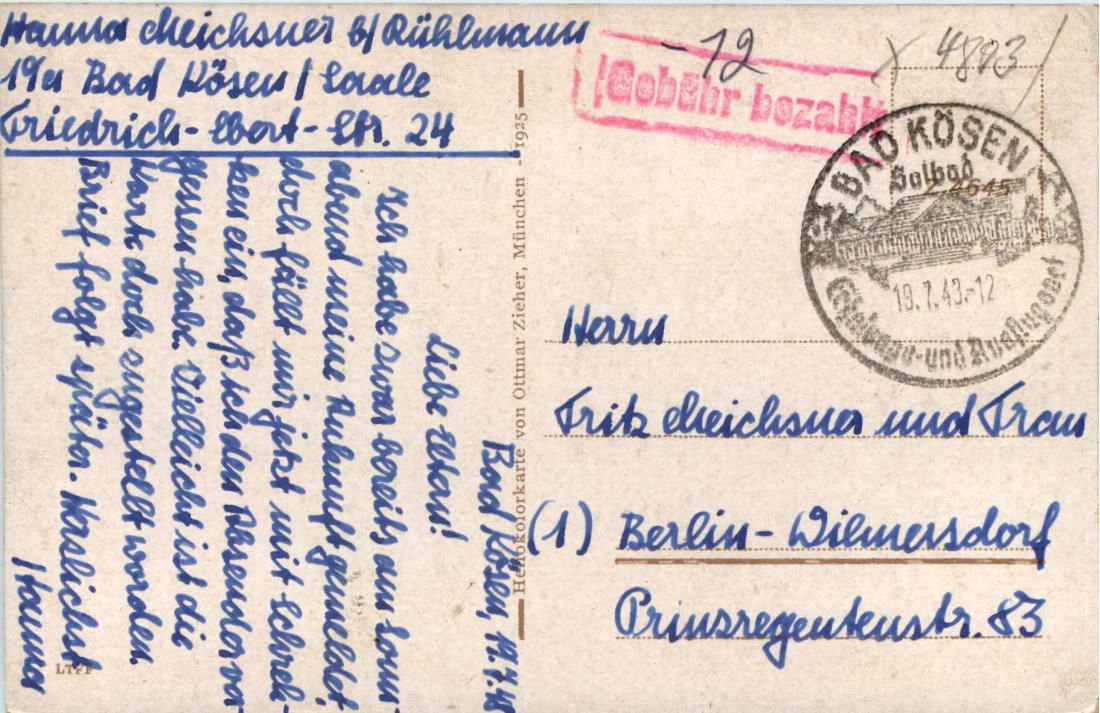 Hanna Meichsner b/ Rühlmann
19a Bad Kösen / Saale
Friedrich-Ebert-Str. 24
Bad Kösen, 19.7.48
Liebe Eltern!
Ich habe zwar bereits am Sonn-
abend meine Ankunft gemeldet,
doch fällt mir jetzt mit Schrek-
ken ein, daß ich den Absender ver-
gessen habe. Vielleicht ist die
Karte doch zugestellt worden.
Brief folgt später. Herzlichst
Hanna
LTPF
Heliokolorkarte von Ottmar Zieher, München - 1925
- 12
Gebühr bezahlt
4893
BAD KÖSEN
Solbad
Z 4645
19.7.48.-12
Erholungs- und Ausflugsort
Herrn
Fritz Meichsner und Frau
(1) Berlin-Wilmersdorf
Prinzregentenstr. 83